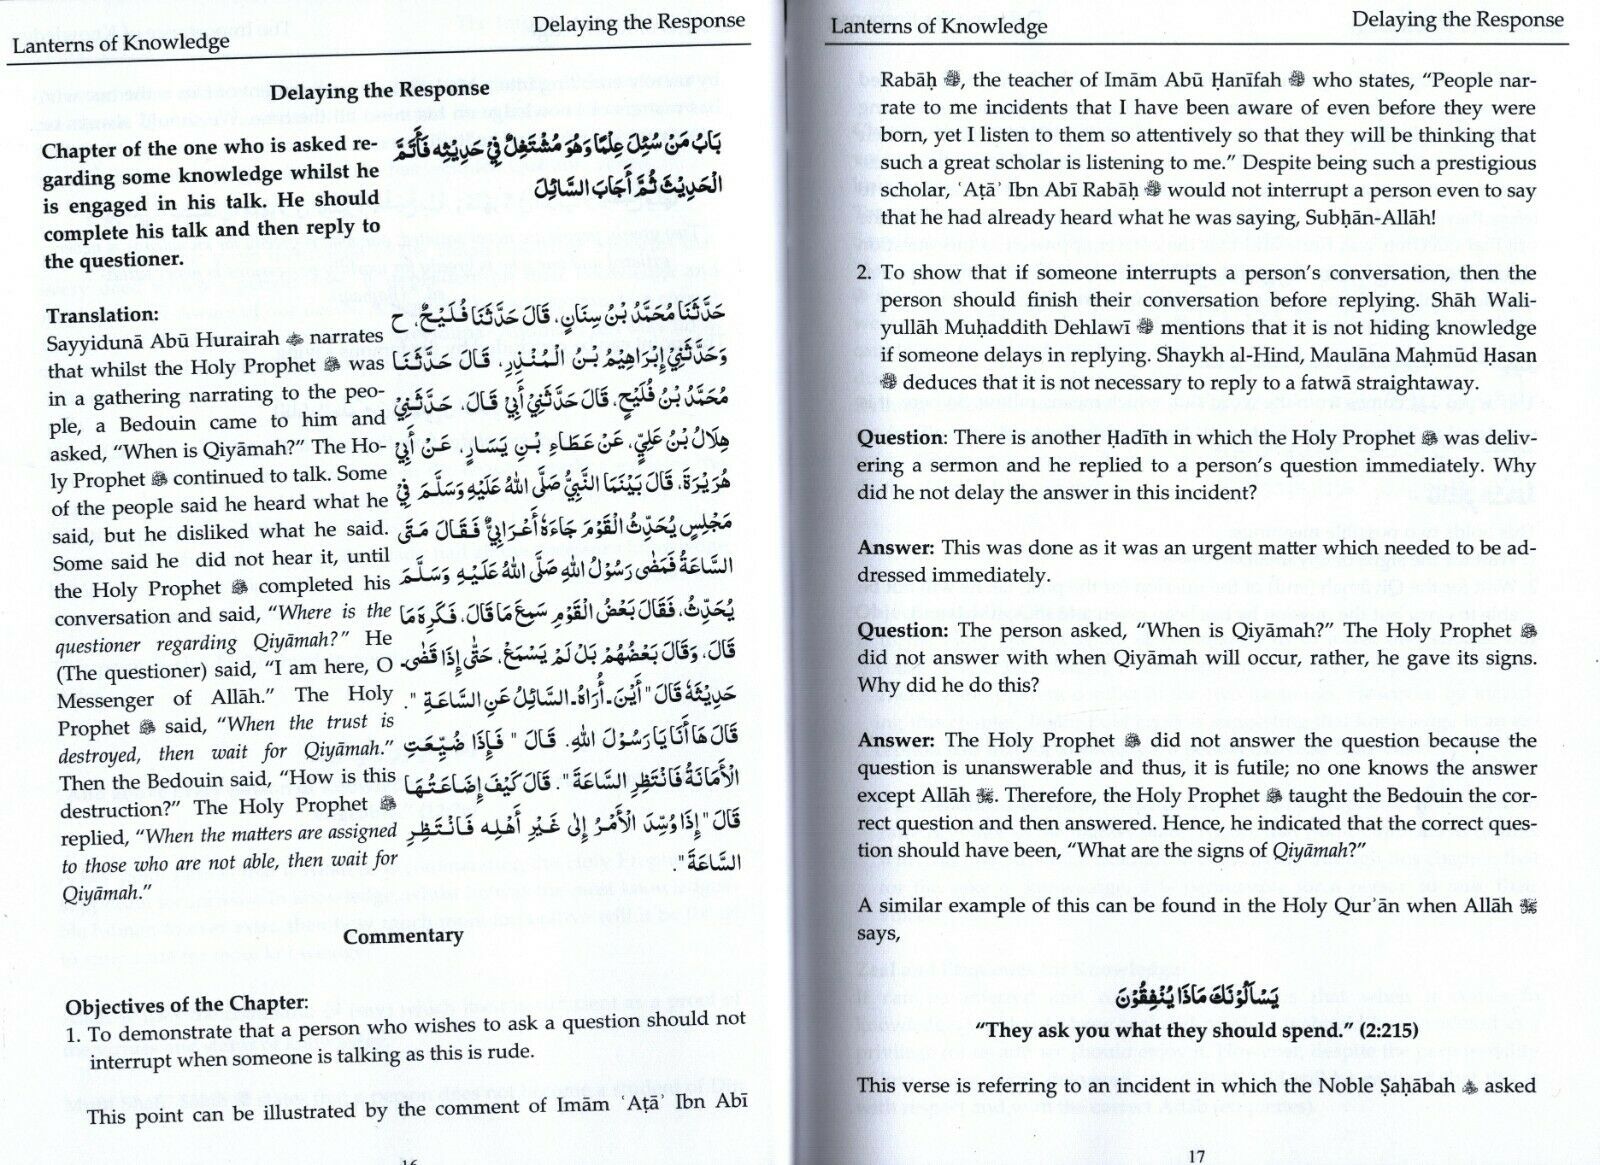 Lanterns of Knowledge
Delaying the Response
Delaying the Response
Chapter of the one who is asked re-
garding some knowledge whilst he
is engaged in his talk. He should
complete his talk and then reply to
the questioner.
بَابُ مَنْ سُئِلَ عِلْمًا وَهُوَ مُشْتَغِلٌ فِي حَدِيْثِه فَأَتَمَّ
الْحَدِيْثَ ثُمَّ أَجَابَ السَّائِلَ
Translation:
Sayyidunā Abū Hurairah ؓ narrates
that whilst the Holy Prophet ﷺ was
in a gathering narrating to the peo-
ple, a Bedouin came to him and
asked, “When is Qiyāmah?” The Ho-
ly Prophet ﷺ continued to talk. Some
of the people said he heard what he
said, but he disliked what he said.
Some said he did not hear it, until
the Holy Prophet ﷺ completed his
conversation and said, “Where is the
questioner regarding Qiyāmah?” He
(The questioner) said, “I am here, O
Messenger of Allāh.” The Holy
Prophet ﷺ said, “When the trust is
destroyed, then wait for Qiyāmah.”
Then the Bedouin said, “How is this
destruction?” The Holy Prophet ﷺ
replied, “When the matters are assigned
to those who are not able, then wait for
Qiyāmah.”
حَدَّثَنَا مُحَمَّدُ بْنُ سِنَانٍ، قَالَ حَدَّثَنَا فُلَيْحٌ، ح
وَحَدَّثَنِيْ إِبْرَاهِيْمُ بْنُ الْمُنْذِرِ، قَالَ حَدَّثَنَا
مُحَمَّدُ بْنُ فُلَيْحٍ، قَالَ حَدَّثَنِيْ أَبِيْ قَالَ، حَدَّثَنِيْ
هِلَالُ بْنُ عَلِيٍّ، عَنْ عَطَاءِ بْنِ يَسَارٍ، عَنْ أَبِيْ
هُرَيْرَةَ، قَالَ بَيْنَمَا النَّبِيُّ صَلَّى اللهُ عَلَيْهِ وَسَلَّمَ فِيْ
مَجْلِسٍ يُحَدِّثُ الْقَوْمَ جَاءَهُ أَعْرَابِيٌّ فَقَالَ مَتَى
السَّاعَةُ فَمَضَى رَسُوْلُ اللهِ صَلَّى اللهُ عَلَيْهِ وَسَلَّمَ
يُحَدِّثُ، فَقَالَ بَعْضُ الْقَوْمِ سَمِعَ مَا قَالَ، فَكَرِهَ مَا
قَالَ، وَقَالَ بَعْضُهُمْ بَلْ لَمْ يَسْمَعْ، حَتَّى إِذَا قَضَى
حَدِيْثَهُ قَالَ "أَيْنَ ـ أُرَاهُ ـ السَّائِلُ عَنِ السَّاعَةِ".
قَالَ هَا أَنَا يَا رَسُوْلَ اللهِ. قَالَ "فَإِذَا ضُيِّعَتِ
الْأَمَانَةُ فَانْتَظِرِ السَّاعَةَ". قَالَ كَيْفَ إِضَاعَتُهَا
قَالَ "إِذَا وُسِّدَ الْأَمْرُ إِلَى غَيْرِ أَهْلِه فَانْتَظِرِ
السَّاعَةَ".
Commentary
Objectives of the Chapter:
1. To demonstrate that a person who wishes to ask a question should not
interrupt when someone is talking as this is rude.
This point can be illustrated by the comment of Imām ʿAṭāʾ Ibn Abī
16
Lanterns of Knowledge
Delaying the Response
Rabāḥ ؒ, the teacher of Imām Abū Ḥanīfah ؒ who states, “People nar-
rate to me incidents that I have been aware of even before they were
born, yet I listen to them so attentively so that they will be thinking that
such a great scholar is listening to me.” Despite being such a prestigious
scholar, ʿAṭāʾ Ibn Abī Rabāḥ ؒ would not interrupt a person even to say
that he had already heard what he was saying, Subḥān-Allāh!
2. To show that if someone interrupts a person’s conversation, then the
person should finish their conversation before replying. Shāh Wali-
yullāh Muḥaddith Dehlawī ؒ mentions that it is not hiding knowledge
if someone delays in replying. Shaykh al-Hind, Maulāna Maḥmūd Ḥasan
ؒ deduces that it is not necessary to reply to a fatwā straightaway.
Question: There is another Ḥadīth in which the Holy Prophet ﷺ was deliv-
ering a sermon and he replied to a person’s question immediately. Why
did he not delay the answer in this incident?
Answer: This was done as it was an urgent matter which needed to be ad-
dressed immediately.
Question: The person asked, “When is Qiyāmah?” The Holy Prophet ﷺ
did not answer with when Qiyāmah will occur, rather, he gave its signs.
Why did he do this?
Answer: The Holy Prophet ﷺ did not answer the question because the
question is unanswerable and thus, it is futile; no one knows the answer
except Allāh ﷻ. Therefore, the Holy Prophet ﷺ taught the Bedouin the cor-
rect question and then answered. Hence, he indicated that the correct ques-
tion should have been, “What are the signs of Qiyāmah?”
A similar example of this can be found in the Holy Qur’ān when Allāh ﷻ
says,
يَسْأَلُوْنَكَ مَاذَا يُنْفِقُوْنَ
“They ask you what they should spend.” (2:215)
This verse is referring to an incident in which the Noble Ṣaḥābah ؓ asked
17